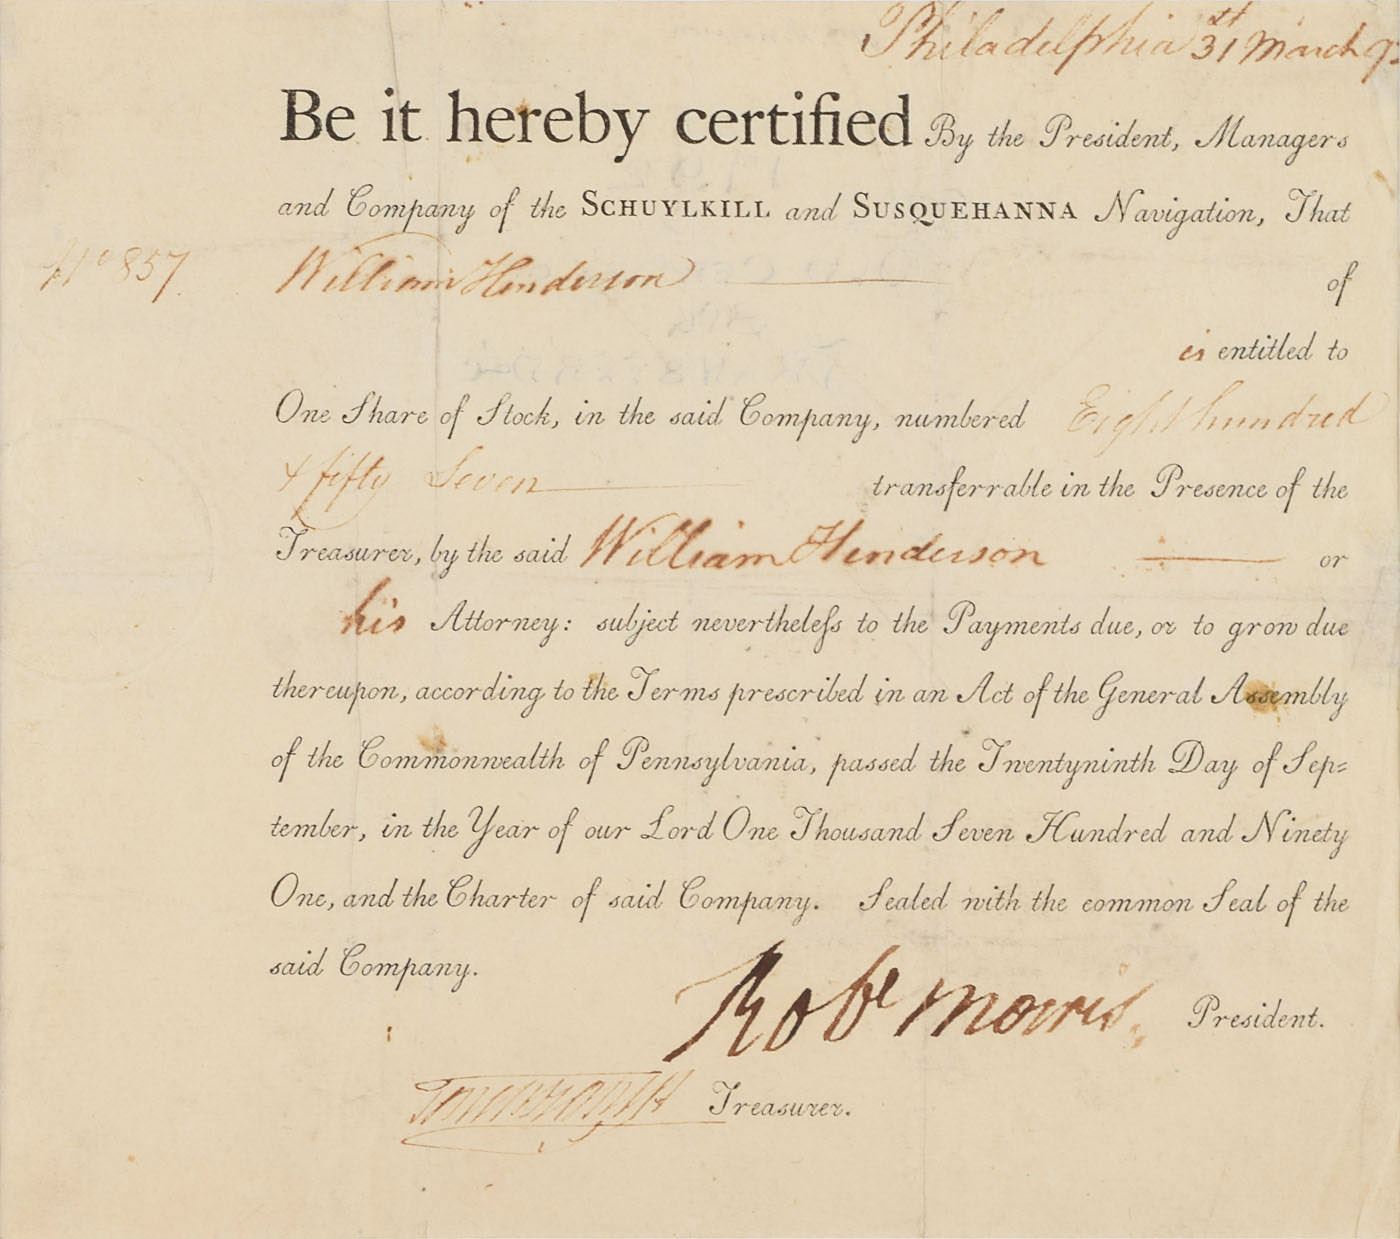 Philadelphia 31th March 92
Be it hereby certified By the President, Managers
and Company of the SCHUYLKILL and SUSQUEHANNA Navigation, That
No 857. William Henderson of
is entitled to
One Share of Stock, in the said Company, numbered Eight hundred
& fifty Seven transferrable in the Presence of the
Treasurer, by the said William Henderson or
his Attorney: subject nevertheleſs to the Payments due, or to grow due
thereupon, according to the Terms prescribed in an Act of the General Assembly
of the Commonwealth of Pennsylvania, passed the Twentyninth Day of Sep=
tember, in the Year of our Lord One Thousand Seven Hundred and Ninety
One, and the Charter of said Company. Sealed with the common Seal of the
said Company.
Robt Morris. President.
Treasurer.